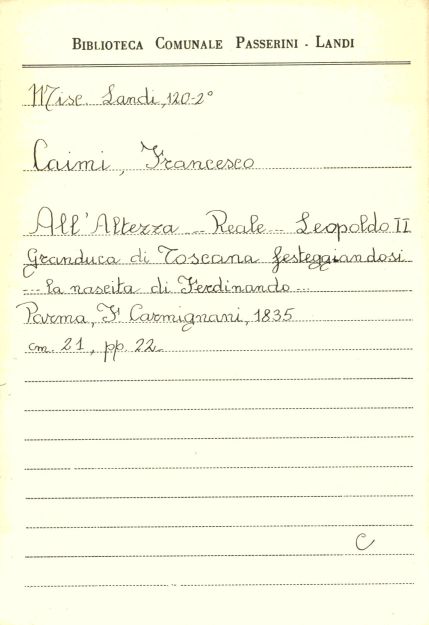 BIBLIOTECA COMUNALE PASSERINI - LANDI
Misc. Landi, 120-2°
Caimi, Francesco
All'Altezza -- Reale -- Leopoldo II
Granduca di Toscana festeggiandosi
--- la nascita di Ferdinando ---
Parma, F. Carmignani, 1835
cm. 21, pp. 22
C